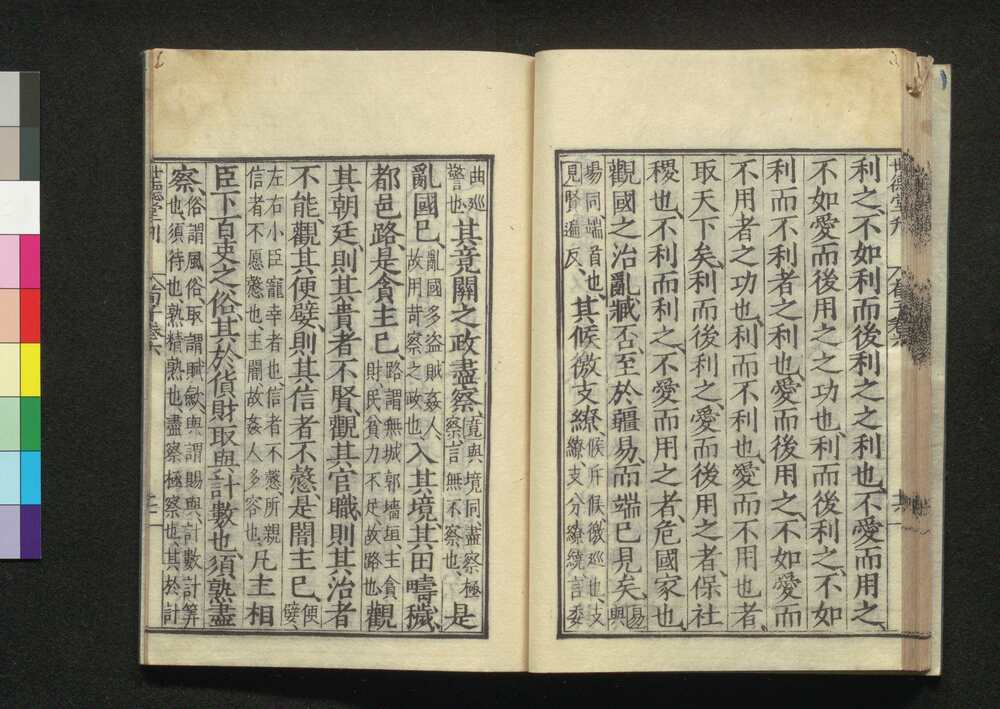 利之、不如利而後利之之利也、不愛而用之、
不如愛而後用之之功也、利而後利之、不如
利而不利者之利也、愛而後用之、不如愛而
不用者之功也、利而不利也、愛而不用也者、
取天下矣、利而後利之、愛而後用之者、保社
稷也、不利而利之、不愛而用之者、危國家也、
觀國之治亂臧否、至於疆易而端已見矣、易與
場同、端首也、見賢遍反、其候徼支繚、候斥候、徼巡也、支繚支分繚繞、言委
曲巡警也、其竟關之政盡察、竟與境同、盡察極察、言無不察也、是
亂國已、亂國多盜賊姦人、故用苛察之政也、入其境、其田疇穢、
都邑路、是貪主已、路謂無城郭墻垣、主貪財、民貧力不足故路也、觀
其朝廷、則其貴者不賢、觀其官職、則其治者
不能、觀其便嬖、則其信者不愨、是闇主已、便嬖、
左右小臣寵幸者也、信者不愨、所親信者不愿愨也、主闇故姦人多容也、凡主相
臣下百吏之俗、其於貨財取與計數也、須孰盡
察、俗謂風俗、取謂賦斂、與謂賜與、計數計筭也、須待也、孰精熟也、盡察極察也、其於計
世德堂刊 荀子卷六